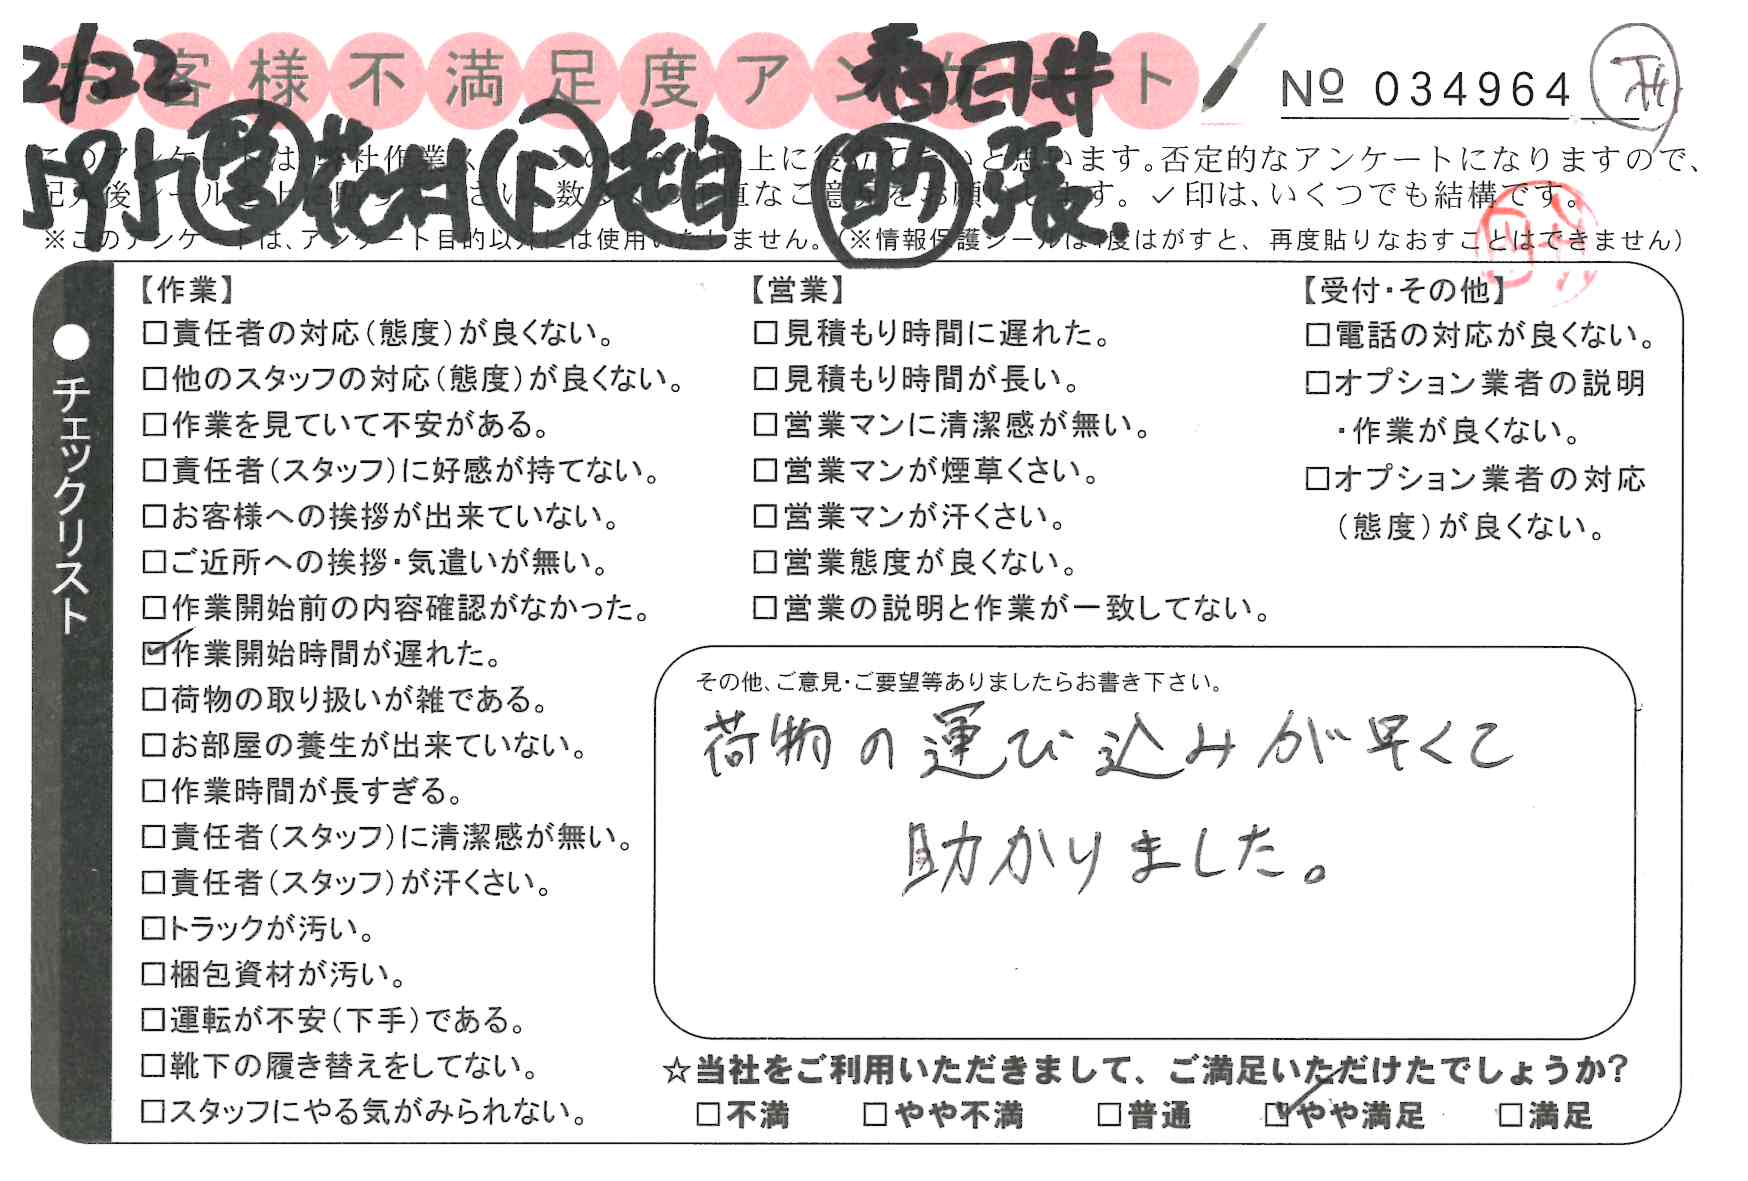 2/22
お客様不満足度アンケート
春日井
№ 034964
※このアンケートは、アンケート目的以外には使用いたしません。(※情報保護シールは1度はがすと、再度貼りなおすことはできません)
チェックリスト
【作業】
□責任者の対応(態度)が良くない。
□他のスタッフの対応(態度)が良くない。
□作業を見ていて不安がある。
□責任者(スタッフ)に好感が持てない。
□お客様への挨拶が出来ていない。
□ご近所への挨拶・気遣いが無い。
□作業開始前の内容確認がなかった。
☑作業開始時間が遅れた。
□荷物の取り扱いが雑である。
□お部屋の養生が出来ていない。
□作業時間が長すぎる。
□責任者(スタッフ)に清潔感が無い。
□責任者(スタッフ)が汗くさい。
□トラックが汚い。
□梱包資材が汚い。
□運転が不安(下手)である。
□靴下の履き替えをしてない。
□スタッフにやる気がみられない。
【営業】
□見積もり時間に遅れた。
□見積もり時間が長い。
□営業マンに清潔感が無い。
□営業マンが煙草くさい。
□営業マンが汗くさい。
□営業態度が良くない。
□営業の説明と作業が一致してない。
【受付・その他】
□電話の対応が良くない。
□オプション業者の説明
・作業が良くない。
□オプション業者の対応
(態度)が良くない。
その他、ご意見・ご要望等ありましたらお書き下さい。
荷物の運び込みが早くて
助かりました。
☆当社をご利用いただきまして、ご満足いただけたでしょうか?
□不満 □やや不満 □普通 ☑やや満足 □満足